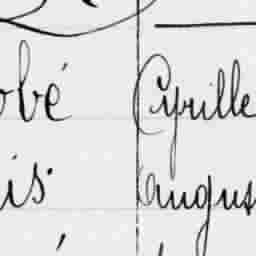 obé Cyrille
is August